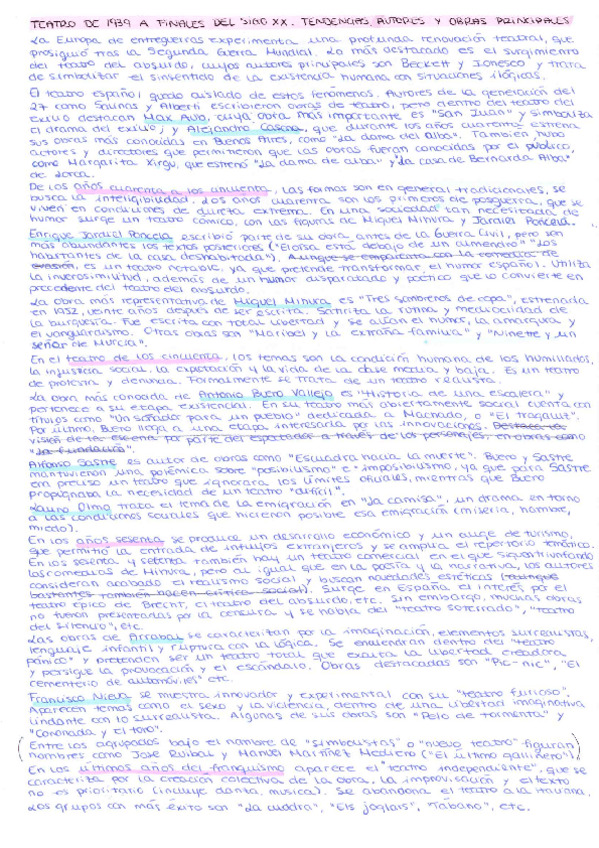 TEATRO DE 1939 A FINALES DEL SIGLO XX. TENDENCIAS, AUTORES Y OBRAS PRINCIPALES
La Europa de entreguerras experimenta una profunda renovación teatral, que
prosiguió tras la Segunda Guerra Mundial. Lo más destacado es el surgimiento
del teatro del absurdo, cuyos autores principales son Beckett y Ionesco y trata
de simbolizar el sinsentido de la existencia humana con situaciones ilógicas.
El teatro español quedó aislado de estos fenómenos. Autores de la generación del
27 como Salinas y Alberti escribieron obras de teatro, pero dentro del teatro del
exilio destacan Max Aub, cuya obra más importante es "San Juan" y simboliza
el drama del exilio; y Alejandro Casona, que durante los años cuarenta estrena
sus obras más conocidas en Buenos Aires, como "La dama del Alba". También hubo
actores y directores que permitieron que las obras fueran conocidas por el público,
como Margarita Xirgu, que estrenó "La dama de alba" y "La casa de Bernarda Alba"
de Lorca.
De los años cuarenta a los cincuenta, las formas son en general tradicionales, se
busca la inteligibilidad. Los años cuarenta son los primeros de posguerra, que se
viven en condiciones de dureza extrema. En una sociedad tan necesitada de
humor surge un teatro cómico, con las figuras de Miguel Mihura y Jardiel Poncela.
Enrique Jardiel Poncela escribió parte de su obra antes de la Guerra Civil, pero son
más abundantes los textos posteriores ("Eloísa está debajo de un almendro" "Los
habitantes de la casa deshabitada"). Aunque se emparenta con la comedia de
evasión, es un teatro notable, ya que pretende transformar el humor español. Utiliza
la inverosimilitud, además de un humor disparatado y poético que lo convierte en
precedente del teatro del absurdo.
La obra más representativa de Miguel Mihura es "Tres sombreros de copa", estrenada
en 1952, veinte años después de ser escrita. Satiriza la rutina y mediocridad de
la burguesía. Fue escrita con total libertad y se aúnan el humor, la amargura y
el vanguardismo. Otras obras son "Maribel y la extraña familia" y "Ninette y un
señor de Murcia".
En el teatro de los cincuenta, los temas son la condición humana de los humillados,
la injusticia social, la explotación y la vida de la clase media y baja. Es un teatro
de protesta y denuncia. Formalmente se trata de un teatro realista.
La obra más conocida de Antonio Buero Vallejo es "Historia de una escalera" y
pertenece a su etapa existencial. En su teatro más abiertamente social cuenta con
títulos como "Un soñador para un pueblo" dedicado a Machado, o "El tragaluz".
Por último, Buero llega a una etapa interesada por las innovaciones. Destaca la
visión de la escena por parte del espectador a través de los personajes, en obras como
"La fundación".
Alfonso Sastre es autor de obras como "Escuadra hacia la muerte". Buero y Sastre
mantuvieron una polémica sobre "posibilismo" e "imposibilismo, ya que para Sastre
era preciso un teatro que ignorara los límites oficiales, mientras que Buero
propugnaba la necesidad de un teatro "difícil".
Lauro Olmo trata el tema de la emigración en "La camisa", un drama en torno
a las condiciones sociales que hicieron posible esa emigración (miseria, hambre,
miedo).
En los años sesenta se produce un desarrollo económico y un auge de turismo,
que permitió la entrada de influjos extranjeros y se amplía el repertorio temático.
En los sesenta y setenta también hay un teatro comercial en el que siguen triunfando
las comedias de Mihura, pero al igual que en la poesía y la narrativa, los autores
consideran acabado el realismo social y buscan novedades estéticas (aunque
bastantes también hacen crítica social). Surge en España el interés por el
teatro épico de Brecht, el teatro del absurdo, etc. Sin embargo, muchas obras
no fueron presentadas por la censura y se habla del "teatro soterrado", "teatro
del silencio", etc.
Las obras de Arrabal se caracterizan por la imaginación, elementos surrealistas,
lenguaje infantil y ruptura con la lógica. Se encuadran dentro del "teatro
pánico" y pretenden ser un teatro total que exalta la libertad creadora
y persigue la provocación y el escándalo. Obras destacadas son "Pic-nic", "El
cementerio de automóviles" etc.
Francisco Nieva se muestra innovador y experimental con su "teatro furioso".
Aparecen temas como el sexo y la violencia, dentro de una libertad imaginativa
lindante con lo surrealista. Algunas de sus obras son "Pelo de tormenta" y
"Coronada y el toro".
(Entre los agrupados bajo el nombre de "simbolistas" o "nuevo teatro" figuran
nombres como José Ruibal y Manuel Martínez Mediero ("El último gallinero"))
En los últimos años del franquismo aparece el "teatro independiente", que se
caracteriza por la creación colectiva de la obra, la improvisación y el texto
no es prioritario (incluye danza, música). Se abandona el teatro a la italiana.
Los grupos con más éxito son "La cuadra", "Els joglars", "Tábano", etc.